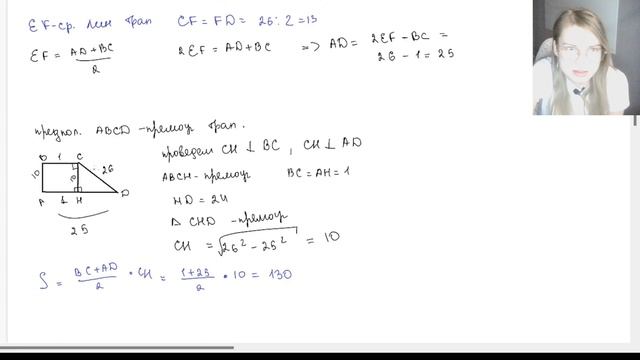 EF-ср. лин трап
CF = FD = 26 : 2 = 13
EF = AD + BC / 2
2EF = AD + BC => AD = 2EF - BC =
26 - 1 = 25
предпол. ABCD - прямоуг трап.
проведем CH ⊥ BC, CH ⊥ AD
B 1 C
26
10
10
A 1 H D
25
ABCH - прямоуг BC = AH = 1
HD = 24
Δ CHD - прямоуг
CH = √26² - 25² = 10
S = BC + AD / 2 • CH = 1 + 25 / 2 • 10 = 130